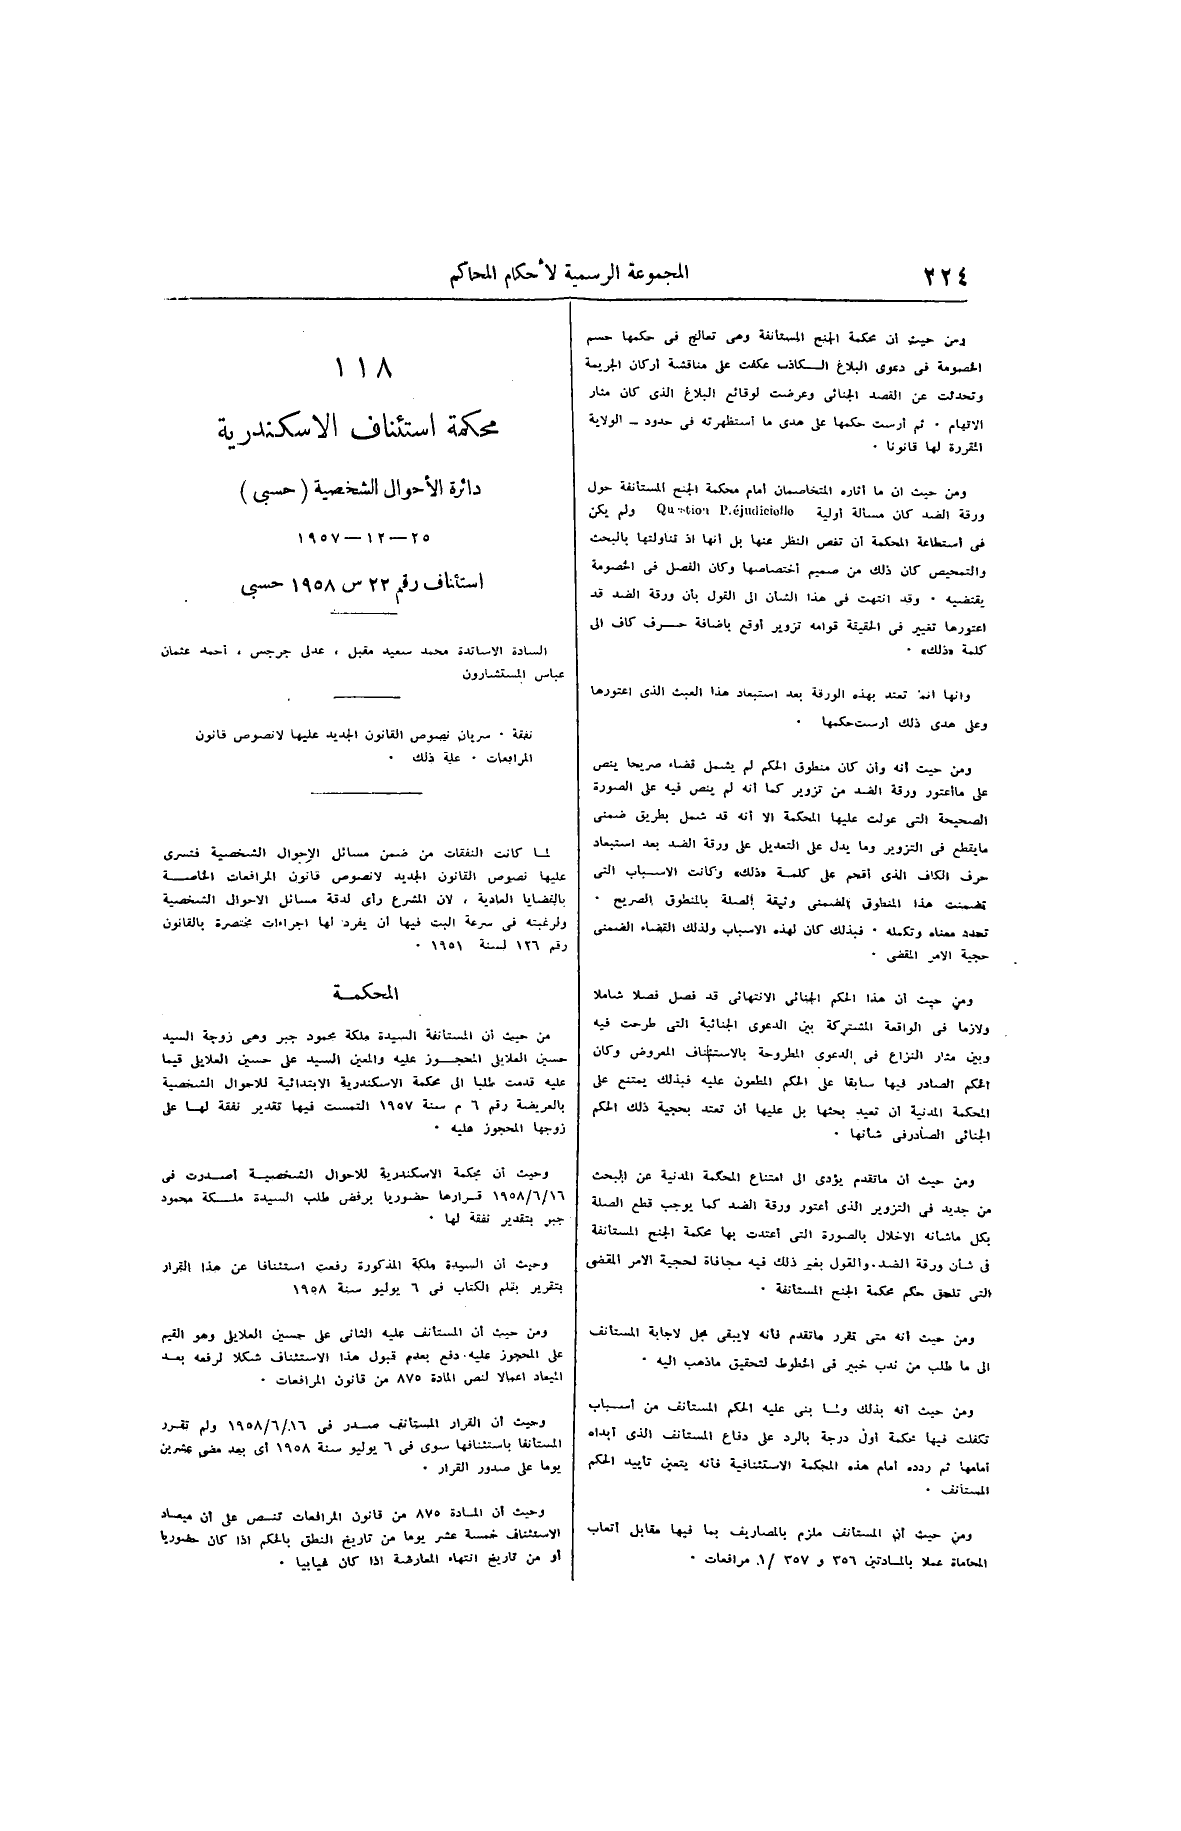 ٢٢٤
المجموعة الرسمية لأحكام المحاكم
ومن حيث أن محكمة الجنح المستأنفة وهى تعالج فى حكمها حسم
الخصومة فى دعوى البلاغ الـكاذب عكفت على مناقشة أركان الجريمة
وتحدثت عن القصد الجنائى وعرضت لوقائع البلاغ الذى كان مثار
الاتهام ٠ ثم أرست حكمها على هدى ما استظهرته فى حدود ــ الولاية
المقررة لها قانونا ٠
ومن حيث ان ما أثاره المتخاصمان أمام محكمة الجنح المستأنفة حول
ورقة الضد كان مسألة أولية Question Préjudicielle ولم يكن
فى أستطاعة المحكمة أن تغض النظر عنها بل أنها اذ تناولتها بالبحث
والتمحيص كان ذلك من صميم أختصاصها وكان الفصل فى الخصومة
يقتضيه ٠ وقد انتهت فى هذا الشأن الى القول بأن ورقة الضد قد
اعتورها تغيير فى الحقيقة قوامه تزوير أوقع باضافة حــرف كاف الى
كلمة «ذلك» ٠
وانها انما تعتد بهذه الورقة بعد استبعاد هذا العبث الذى اعتورها
وعلى هدى ذلك أرست حكمها ٠
ومن حيث أنه وأن كان منطوق الحكم لم يشمل قضاء صريحا ينص
على ماأعتور ورقة الضد من تزوير كما أنه لم ينص فيه على الصورة
الصحيحة التى عولت عليها المحكمة الا أنه قد شمل بطريق ضمنى
مايقطع فى التزوير وما يدل على التعديل على ورقة الضد بعد استبعاد
حرف الكاف الذى أقحم على كلمـة «ذلك» وكانت الاسـباب التى
تضمنت هذا المنطوق الضمنى وثيقة الصلة بالمنطوق الصريح ٠
تحدد معناه وتكمله ٠ فبذلك كان لهذه الاسباب ولذلك القضاء الضمنى
حجية الامر المقضى ٠
ومن حيث أن هذا الحكم الجنائى الانتهائى قد فصل فصلا شاملا
ولازما فى الواقعة المشتركة بين الدعوى الجنائية التى طرحت فيه
وبين مثار النزاع فى الدعوى المطروحة بالاستئناف المعروض وكان
الحكم الصادر فيها سابقا على الحكم المطعون عليه فبذلك يمتنع على
المحكمة المدنية أن تعيد بحثها بل عليها أن تعتد بحجية ذلك الحكم
الجنائى الصادرفى شأنها ٠
ومن حيث أن ماتقدم يؤدى الى امتناع المحكمة المدنية عن البحث
من جديد فى التزوير الذى أعتور ورقة الضد كما يوجب قطع الصلة
بكل ماشانه الاخلال بالصورة التى أعتدت بها محكمة الجنح المستأنفة
فى شأن ورقة الضد٠والقول بغير ذلك فيه مجافاة لحجية الامر المقضى
التى تلحق حكم محكمة الجنح المستأنفة ٠
ومن حيث أنه متى تقرر ماتقدم فأنه لايبقى محل لاجابة المستأنف
الى ما طلب من ندب خبير فى الخطوط لتحقيق ماذهب اليه ٠
ومن حيث أنه بذلك ولما بنى عليه الحكم المستأنف من أســباب
تكفلت فيها محكمة أول درجة بالرد على دفاع المستأنف الذى أبداه
أمامها ثم ردده أمام هذه المحكمة الاستئنافية فأنه يتعين تأييد الحكم
المستأنف ٠
ومن حيث أن المستأنف ملزم بالمصاريف بما فيها مقابل أتعاب
المحاماة عملا بالمـادتين ٣٥٦ و ٣٥٧ /١ مرافعات ٠
١١٨
محكمة استئناف الاسكندرية
دائرة الأحوال الشخصية ( حسبى )
٢٥ــ١٢ــ١٩٥٧
استئناف رقم ٢٢ س ١٩٥٨ حسبى
السادة الاساتذة محمد سعيد مقبل ، عدلى جرجس ، أحمد عثمان
عباس المستشارون
نفقة ٠ سريان نصوص القانون الجديد عليها لانصوص قانون
المرافعات ٠ علة ذلك ٠
لمـا كانت النفقات من ضمن مسائل الاحوال الشخصية فتسرى
عليها نصوص القانون الجديد لانصوص قانون المرافعات الخاصـــة
بالقضايا العادية ، لان المشرع رأى لدقة مسائل الاحوال الشخصية
ولرغبته فى سرعة البت فيها أن يفرد لها اجراءات مختصرة بالقانون
رقم ١٢٦ لسنة ١٩٥١ ٠
المحكمــة
من حيث أن المستأنفة السيدة ملكة محمود جبر وهى زوجة السيد
حسين العلايلى المحجــوز عليه والمعين السيد على حسين العلايلى قيما
عليه قدمت طلبا الى محكمة الاسكندرية الابتدائية للاحوال الشخصية
بالعريضة رقم ٦ م سنة ١٩٥٧ التمست فيها تقدير نفقة لهــا على
زوجها المحجوز عليه ٠
وحيث أن محكمة الاسكندرية للاحوال الشخصيــة أصــدرت فى
١٩٥٨/٦/١٦ قــرارها حضوريا برفض طلب السيدة ملــكة محمود
جبر بتقدير نفقة لها ٠
وحيث أن السيدة ملكة المذكورة رفعت استئنافا عن هذا القرار
بتقرير بقلم الكتاب فى ٦ يوليو سنة ١٩٥٨
ومن حيث أن المستأنف عليه الثانى على حسين العلايلى وهو القيم
على المحجوز عليه٠دفع بعدم قبول هذا الاستئناف شكلا لرفعه بعــد
الميعاد اعمالا لنص المادة ٨٧٥ من قانون المرافعات ٠
وحيث أن القرار المستأنف صــدر فى ١٩٥٨/٦/١٦ ولم تقــرر
المستأنفا باستئنافها سوى فى ٦ يوليو سنة ١٩٥٨ أى بعد مضى عشرين
يوما على صدور القرار ٠
وحيث أن المـادة ٨٧٥ من قانون المرافعات تنــص على أن ميعــاد
الاستئناف خمسة عشر يوما من تاريخ النطق بالحكم اذا كان حضوريا
أو من تاريخ انتهاء المعارضة اذا كان غيابيا ٠